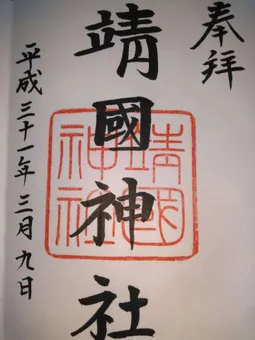 奉拝
靖國神社
平成三十一年三月九日
靖國
神社